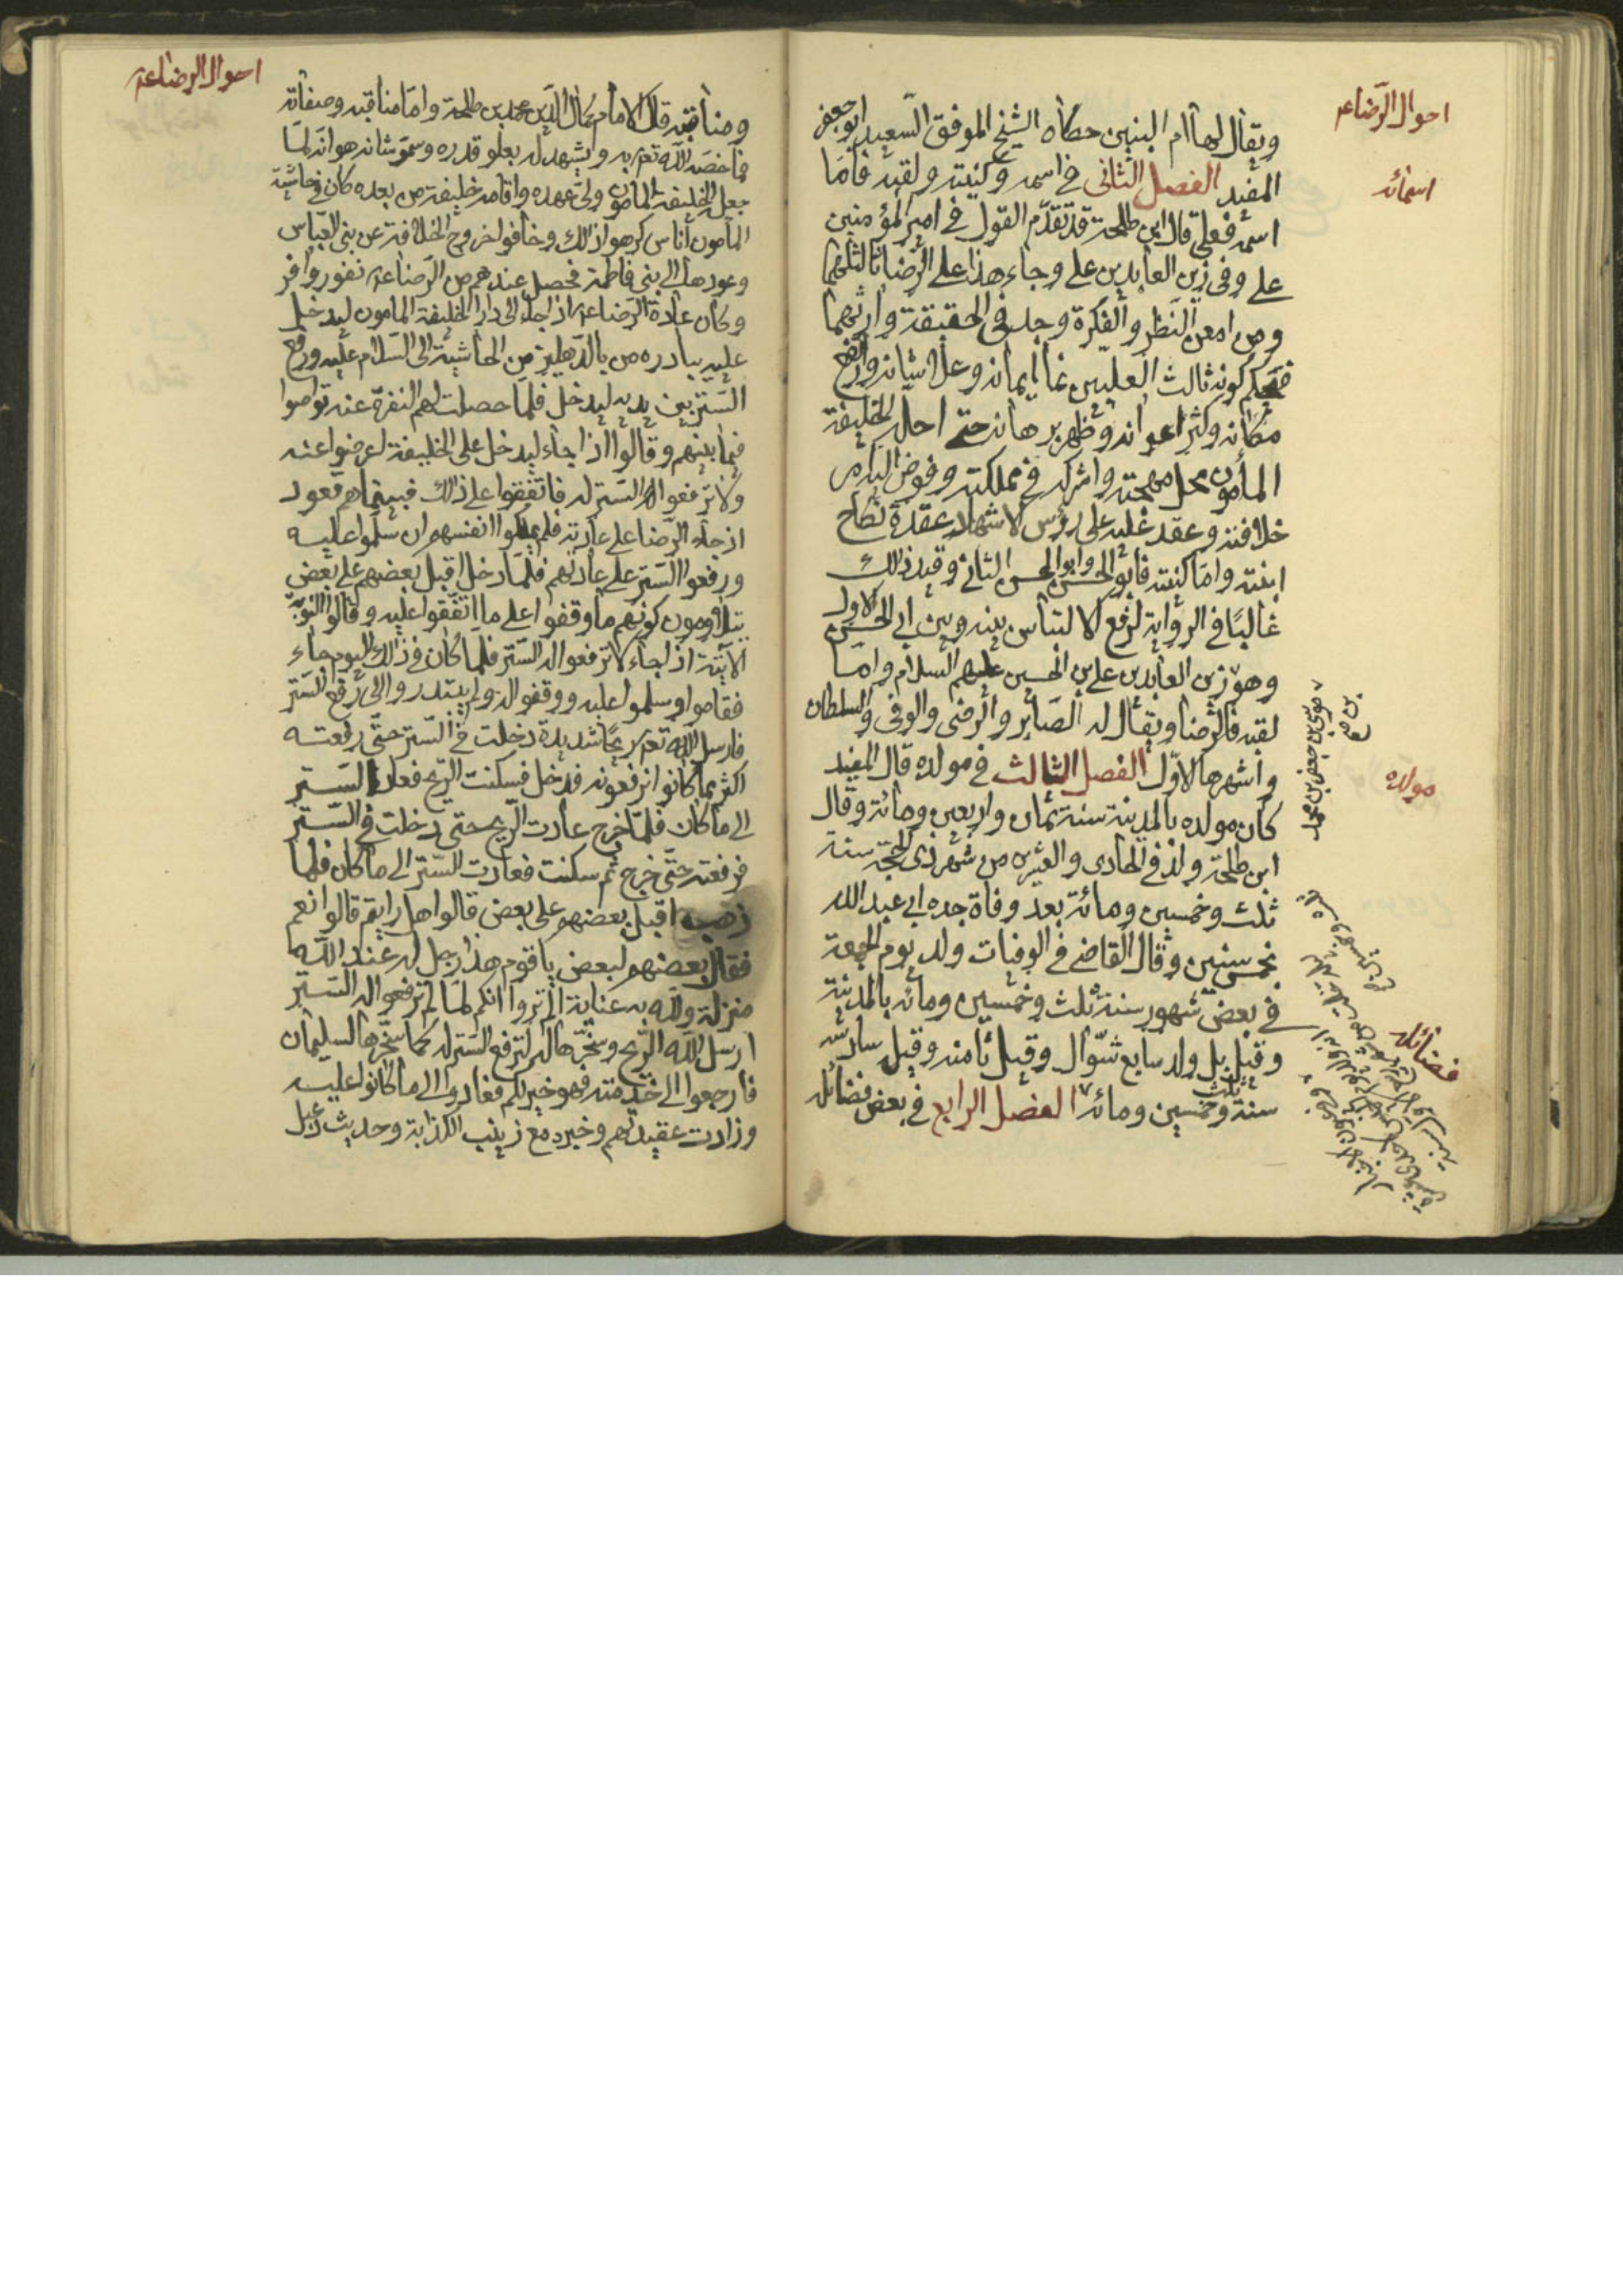 احوال الرضاء
ويقال لها ام البنين حكاه الشيخ الموفق السعيد ابو جعفر
المفيد الفصل الثاني في اسمه وكنيته ولقبه فاما
اسمائه
اسمه فعلي قال ابن طلحة قد تقدم القول في امير المؤمنين
علي وفي زين العابدين علي وجاء هذا علي الرضا ثالثهما
ومن امعن النظر والفكرة وجد في الحقيقة وارثهما
فيحكم كونه ثالث العليين نما ايمانه وعلا شانه وارتفع
مكانه وكثر اعوانه وظهر برهانه حتى احله الخليفة
المأمون محل مهجته واشركه في مملكته وفوض اليه امر
خلافته وعقد عليه على رؤس الاشهاد عقدة نكاح
ابنته واما كنيته فابو الحسن وابو الحسن الثاني وقيد ذلك
غالبا في الرواية لرفع الالتباس بينه وبين ابي الحسن الاول
وهو زين العابدين علي بن الحسين عليهم السلام واما
لقبه فالرضا ويقال له الصابر والرضى والوفى والسلطان
موسى بن جعفر بن محمد
واشهرها الاول الفصل الثالث في مولده قال المفيد
مولده
كان مولده بالمدينة سنة ثمان واربعين ومائة وقال
ابن طلحة ولد في الحادى والعشرين من شهر ذى الحجة سنة
ثلث وخمسين ومائة بعد وفاة جده ابي عبد الله
بخمس سنين وقال القاضي في الوفيات ولد يوم الجمعة
في بعض شهور سنة ثلث وخمسين ومائه بالمدينة
وقيل بل ولد سابع شوال وقيل ثامنه وقيل سادسه
سنة ثلث وخمسين ومائه الفصل الرابع في بعض فضائله
فضائله
احوال الرضاء
ومناقبه قال الامام كمال الدين محمد بن طلحة واما مناقبه وصفاته
فما خصه الله تعالى به ويشهد له بعلو قدره وسمو شانه هو انه لما
جعل الخليفة المامون ولى عهده واقامه خليفة من بعده كان في حاشية
المأمون اناس كرهوا ذلك وخافوا خروج الخلافة عن بني العباس
وعودها الى بني فاطمة فحصل عندهم من الرضاء نفور وافر
وكان عادة الرضاء اذا جاء الى دار الخليفة المامون ليدخل
عليه يبادره من بالدهليز من الحاشية الى السلام عليه ورفع
الستر بين يديه ليدخل فلما حصلت لهم النفرة عنه تواصوا
فيما بينهم وقالوا اذا جاء ليدخل على الخليفة اعرضوا عنه
ولا ترفعوا الستر له فاتفقوا على ذلك فبينما هم قعود
اذ جاء الرضا على عادته فلم يملكوا انفسهم ان سلموا عليه
ورفعوا الستر على عادتهم فلما دخل اقبل بعضهم على بعض
يتلاومون كونهم ما وقفوا على ما اتفقوا عليه وقالوا النوبة
الآتية اذا جاء لا ترفعوا له الستر فلما كان في ذلك اليوم جاء
فقاموا وسلموا عليه ووقفوا له ولم يبتدروا الى رفع الستر
فارسل الله تعالى ريحا شديدة دخلت في الستر حتى رفعته
اكثر مما كانوا يرفعونه فدخل فسكنت الريح فعاد الستر
الى ما كان فلما خرج عادت الريح حتى دخلت في الستر
فرفعته حتى خرج ثم سكنت فعادت الستر الى ما كان فلما
ذهب اقبل بعضهم على بعض قالوا هل رايتم قالوا نعم
فقال بعضهم لبعض يا قوم هذا رجل له عند الله
منزلة ولله به عناية الم تروا انكم لما لم ترفعوا له الستر
ارسل الله الريح وسخرها له لترفع الستر له كما سخرها لسليمان
فارجعوا الى خدمته فهو خير لكم فعادوا الى ما كانوا عليه
وزادت عقيدتهم وخبره مع زينب الكذابة وحديث دعبل